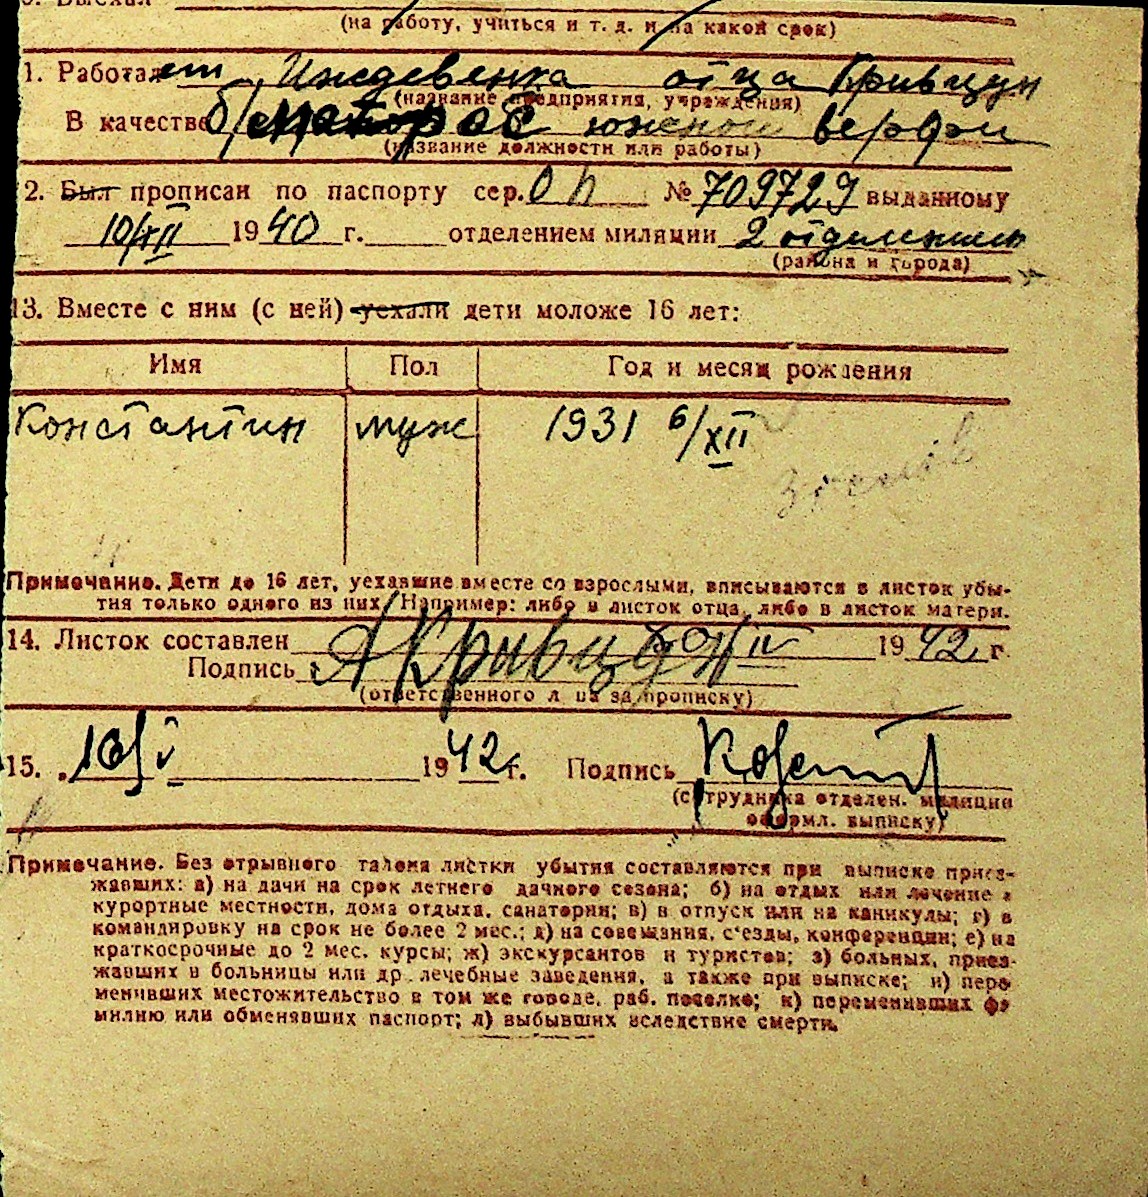 (на работу, учиться и т. д. и на какой срок)
1. Работает Иждевенка отца Кривцун
(название предприятия, учреждения)
В качестве б/ южной верфи
(название должности или работы)
2. Был прописан по паспорту сер. ОП № 709729 выданному
10/XII 1940 г. отделением милиции 2 отделением
(района и города)
13. Вместе с ним (с ней) уехали дети моложе 16 лет:
Имя Пол Год и месяц рождения
Константин муж 1931 6/XII
Примечание. Дети до 16 лет, уехавшие вместе со взрослыми, вписываются в листок убы-
тия только одного из них. Например: либо в листок отца, либо в листок матери.
14. Листок составлен IV 1942 г
Подпись АКривцун
(ответственного лица за прописку)
15. 1942 г. Подпись
(сотрудника отделен. милиции
оформл. выписку)
Примечание. Без отрывного талона листки убытия составляются при выписке приез-
жавших: а) на дачи на срок летнего дачного сезона; б) на отдых или лечение в
курортные местности, дома отдыха, санатории; в) в отпуск или на каникулы; г) в
командировку на срок не более 2 мес.; д) на совещания, с'езды, конференции; е) на
краткосрочные до 2 мес. курсы; ж) экскурсантов и туристов; з) больных, приез-
жавших в больницы или др. лечебные заведения, а также при выписке; и) пере
менивших местожительство в том же городе, раб. поселке; к) переменивших фа
милию или обменявших паспорт; л) выбывших вследствие смерти.